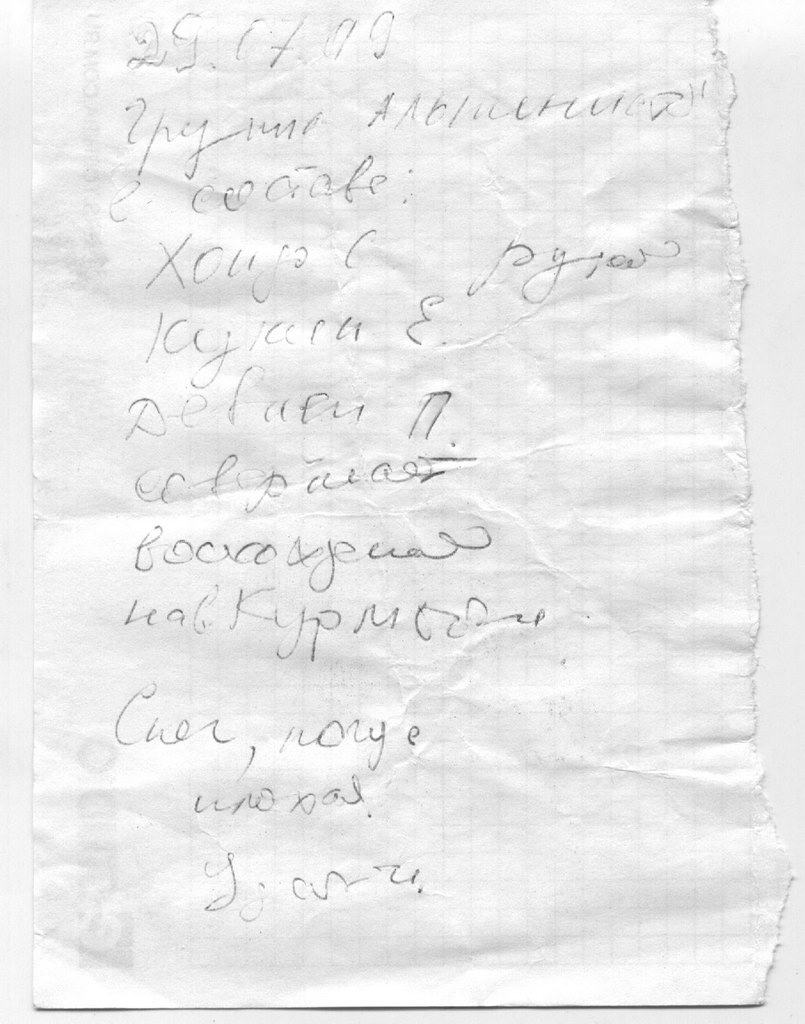 29.07.09
Группа Альпинист"
в составе:
С рук
Е.
П.
совершает
восхождение
на в. Курмычи
Снег, погода
плохая.
Удачи.